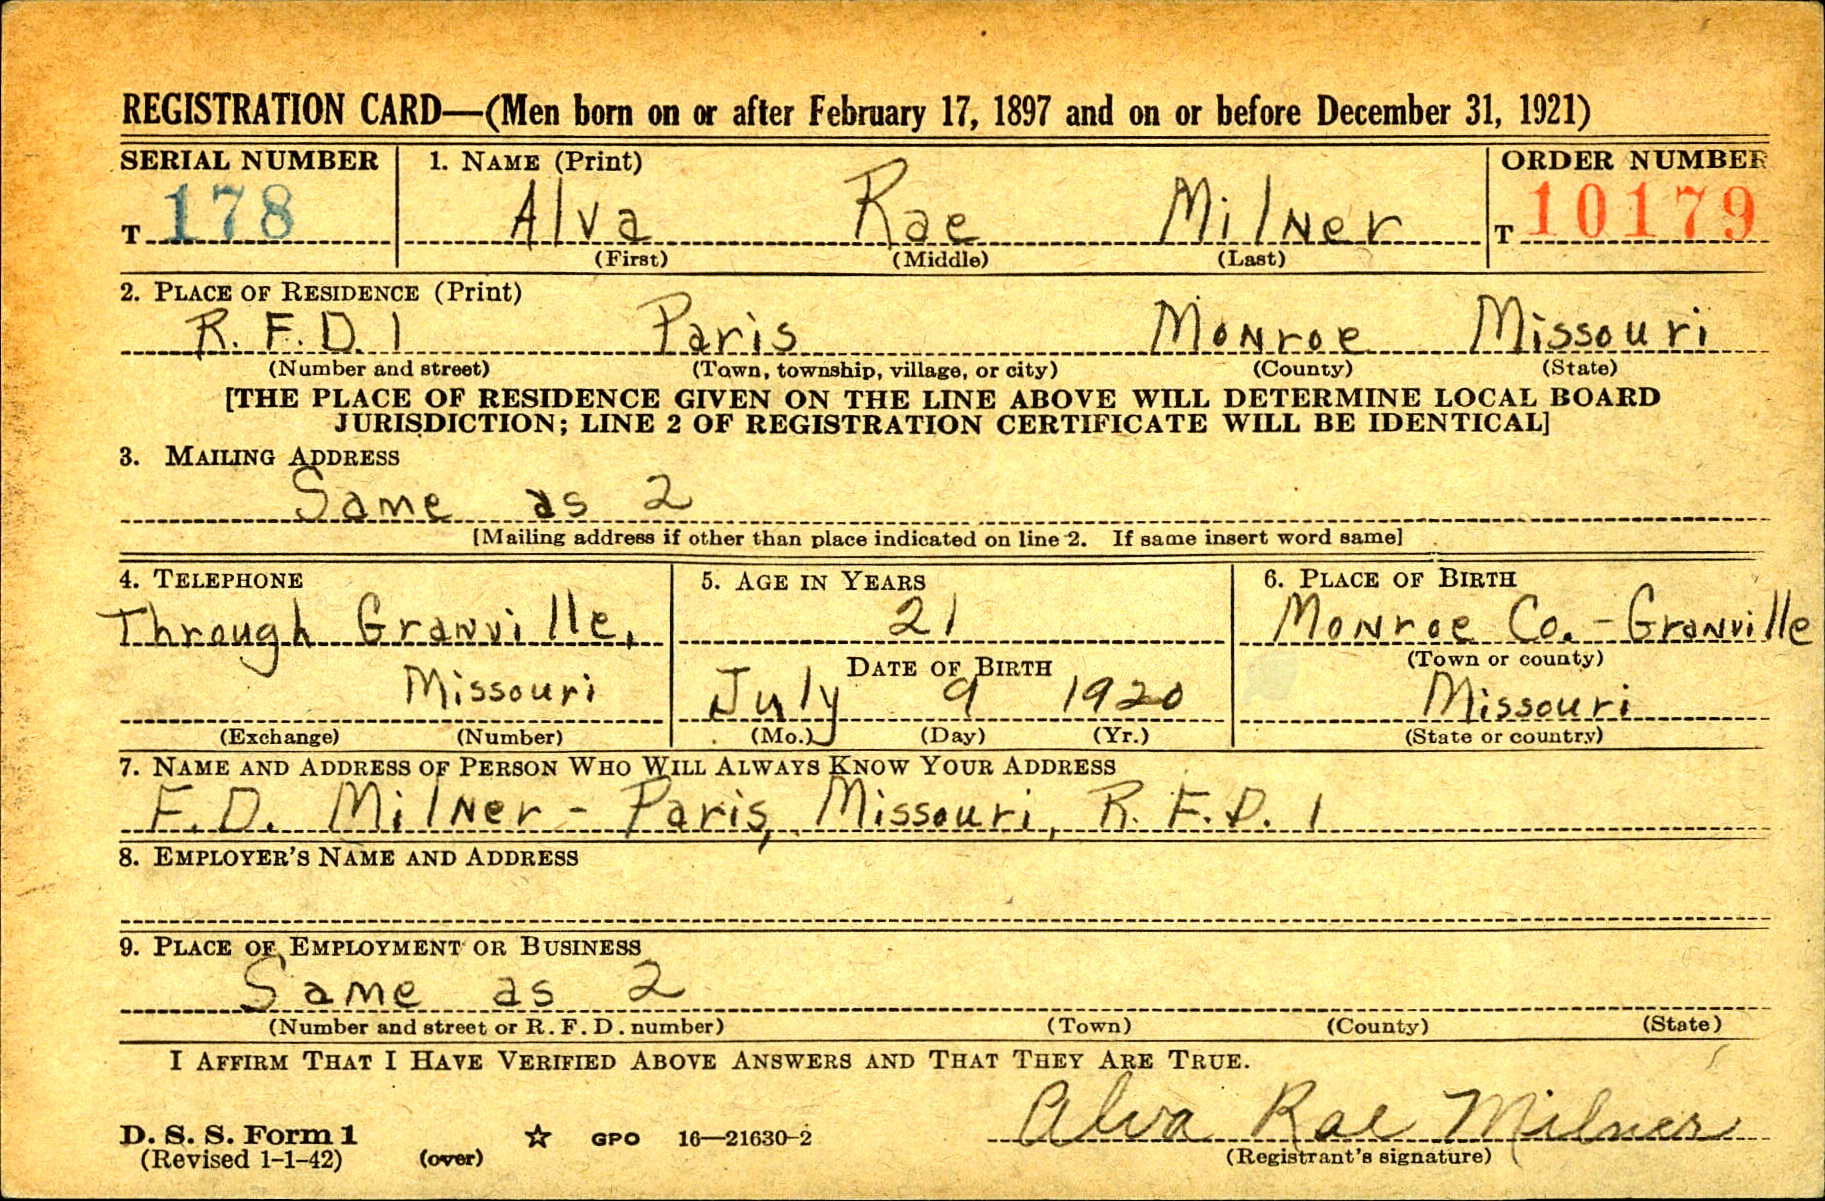 REGISTRATION CARD—(Men born on or after February 17, 1897 and on or before December 31, 1921)
SERIAL NUMBER 1. NAME (Print) ORDER NUMBER
T 178 Alva Rae Milner T 10179
(First) (Middle) (Last)
2. PLACE OF RESIDENCE (Print)
R. F. D. 1 Paris Monroe Missouri
(Number and street) (Town, township, village, or city) (County) (State)
[THE PLACE OF RESIDENCE GIVEN ON THE LINE ABOVE WILL DETERMINE LOCAL BOARD
JURISDICTION; LINE 2 OF REGISTRATION CERTIFICATE WILL BE IDENTICAL]
3. MAILING ADDRESS
Same as 2
[Mailing address if other than place indicated on line 2. If same insert word same]
4. TELEPHONE 5. AGE IN YEARS 6. PLACE OF BIRTH
Through Granville, 21 Monroe Co. - Granville
DATE OF BIRTH (Town or county)
Missouri July 9 1920 Missouri
(Exchange) (Number) (Mo.) (Day) (Yr.) (State or country)
7. NAME AND ADDRESS OF PERSON WHO WILL ALWAYS KNOW YOUR ADDRESS
F. D. Milner - Paris, Missouri, R. F. D. 1
8. EMPLOYER'S NAME AND ADDRESS
9. PLACE OF EMPLOYMENT OR BUSINESS
Same as 2
(Number and street or R. F. D. number) (Town) (County) (State)
I AFFIRM THAT I HAVE VERIFIED ABOVE ANSWERS AND THAT THEY ARE TRUE.
Alva Rae Milner
D. S. S. Form 1 ☆ GPO 16—21630-2
(Revised 1-1-42) (over) (Registrant's signature)